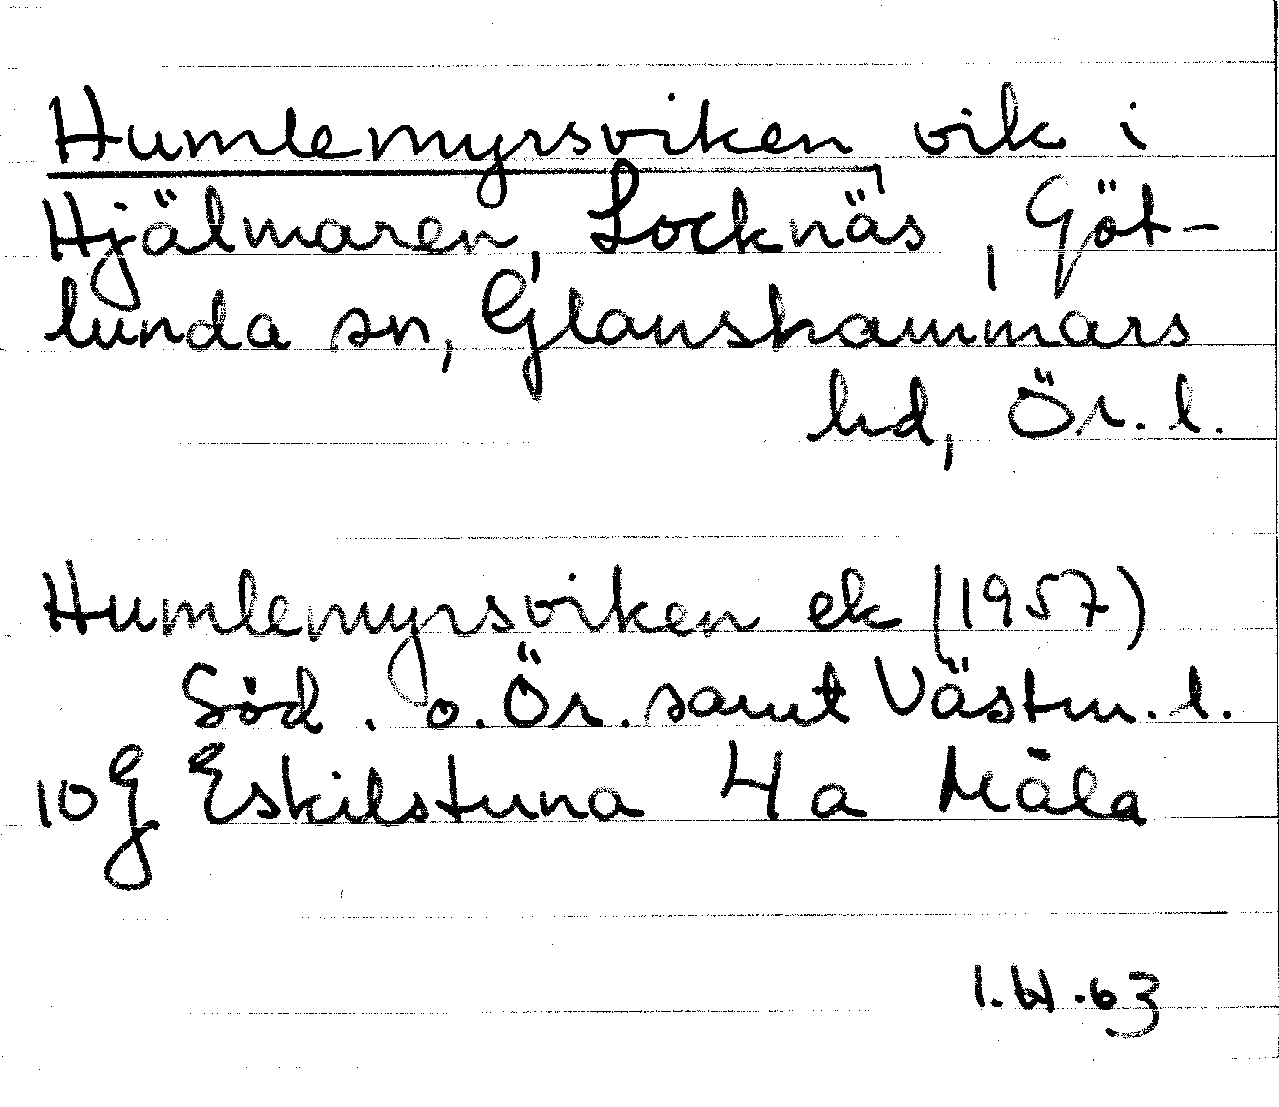 Humlemyrsviken vik i
Hjälmaren, Locknäs, Göt-
lunda sn, Glanshammars
hd, Ör. l.
Humlemyrsviken ek (1957)
Söd. o. Ör. samt Västm. l.
10g Eskilstuna 4a Mäla
I.W.63